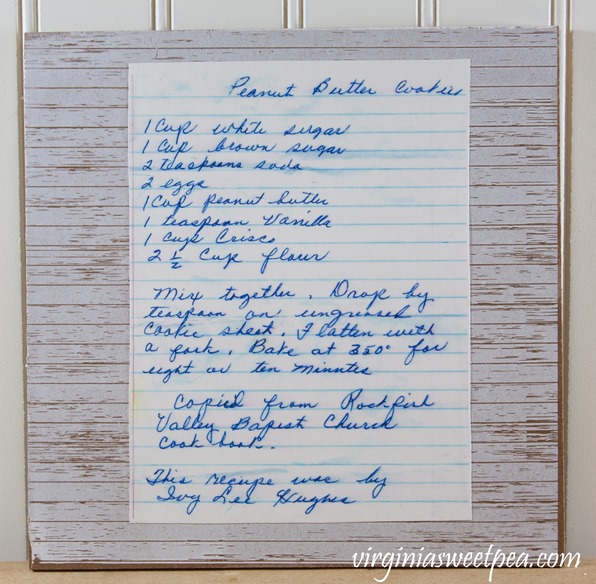 Peanut Butter Cookies
1 Cup white sugar
1 Cup brown sugar
2 teaspoons soda
2 eggs
1 Cup peanut butter
1 teaspoon Vanilla
1 Cup Crisco
2 1/2 Cup flour
Mix together. Drop by
teaspoon on ungreased
Cookie sheet. Flatten with
a fork. Bake at 350° for
eight or ten minutes
Copied from Rockfish
Valley Bapist Church
Cook book.
This recipe was by
Ivy Lee Hughes
virginiasweetpea.com